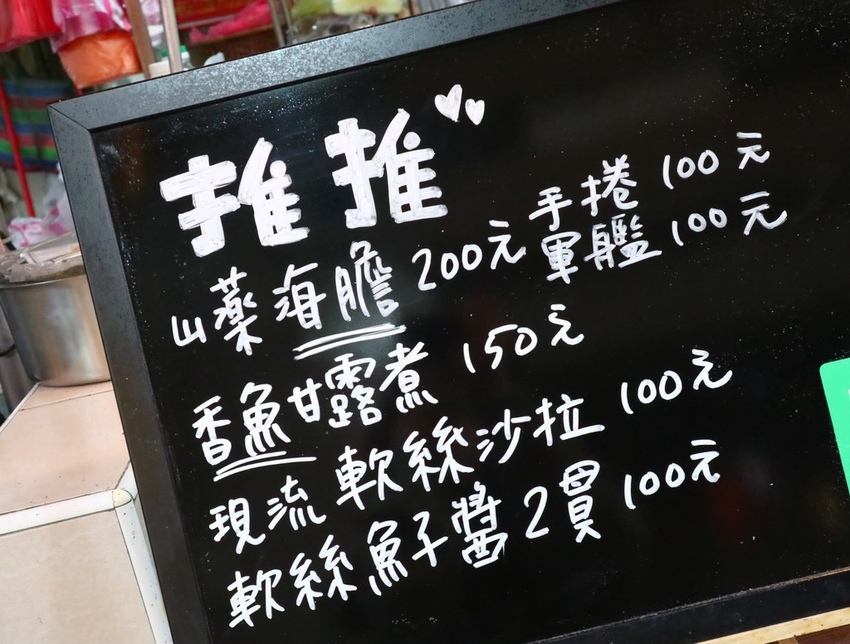 推推
山藥海膽 200元 手捲 100元
軍艦 100元
香魚甘露煮 150元
現流軟絲沙拉 100元
軟絲魚子醬2貫 100元